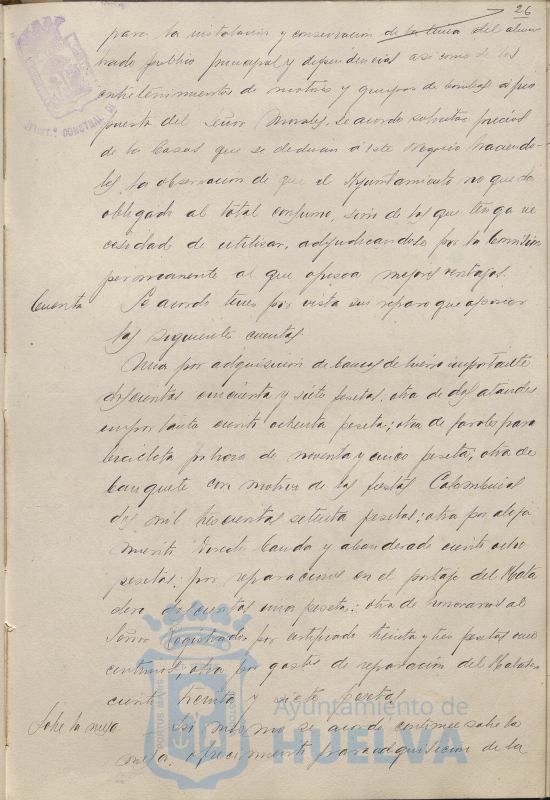 26
para la instalacion y conservacion de la linea del alum
brado publico principal y dependencias asi como de los
entretenimientos de motores y grupos de bombas a pro
puesta del Señor Morales, se acordo solicitar precios
de las Casas que se dedican a este Negocio haciendo-
les la observacion de que el Ayuntamiento no queda
obligado al total consumo, sino de los que tenga ne
cesidad de utilizar, adjudicandose por la Comision
permanente al que ofrezca mejores ventajas.
Cuenta
Se acordo tener por vista sin reparo que oponer
las siguientes cuentas
Una por adquisicion de bancos de hierro importante
doscientas cincuenta y siete pesetas, otra de dos ataudes
importante ciento ochenta peseta; otra de faroles para
bicicleta de noventa y cinco peseta; otra de
banquete con motivo de las fiestas Colombinas
dos mil trescientas setenta pesetas; otra por aloja
miento banda y abanderado ciento ocho
pesetas; por reparaciones en el portaje del Mata
dero doscientas una peseta; otra de honorarios al
Señor Registrador por certificado treinta y tres pesetas
centimos; otra por gastos de reparación del Matadero
ciento treinta y siete pesetas
Sobre la mesa
Asi mismo se acordó continue sobre la
mesa, ofrecimiento para adquisicion de la
Ayuntamiento de
HUELVA